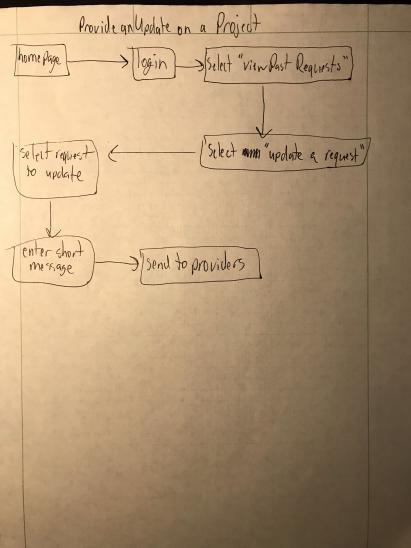 Provide an Update on a Project
homepage
login
Select "view Past Requests"
Select "update a request"
select request
to update
enter short
message
send to providers